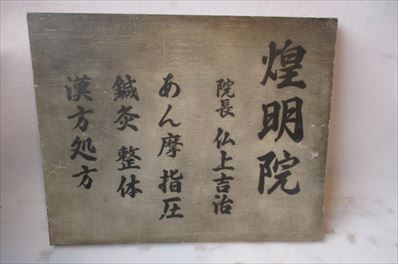 煌明院
院長 仏上吉治
あん摩 指圧
鍼灸 整体
漢方処方